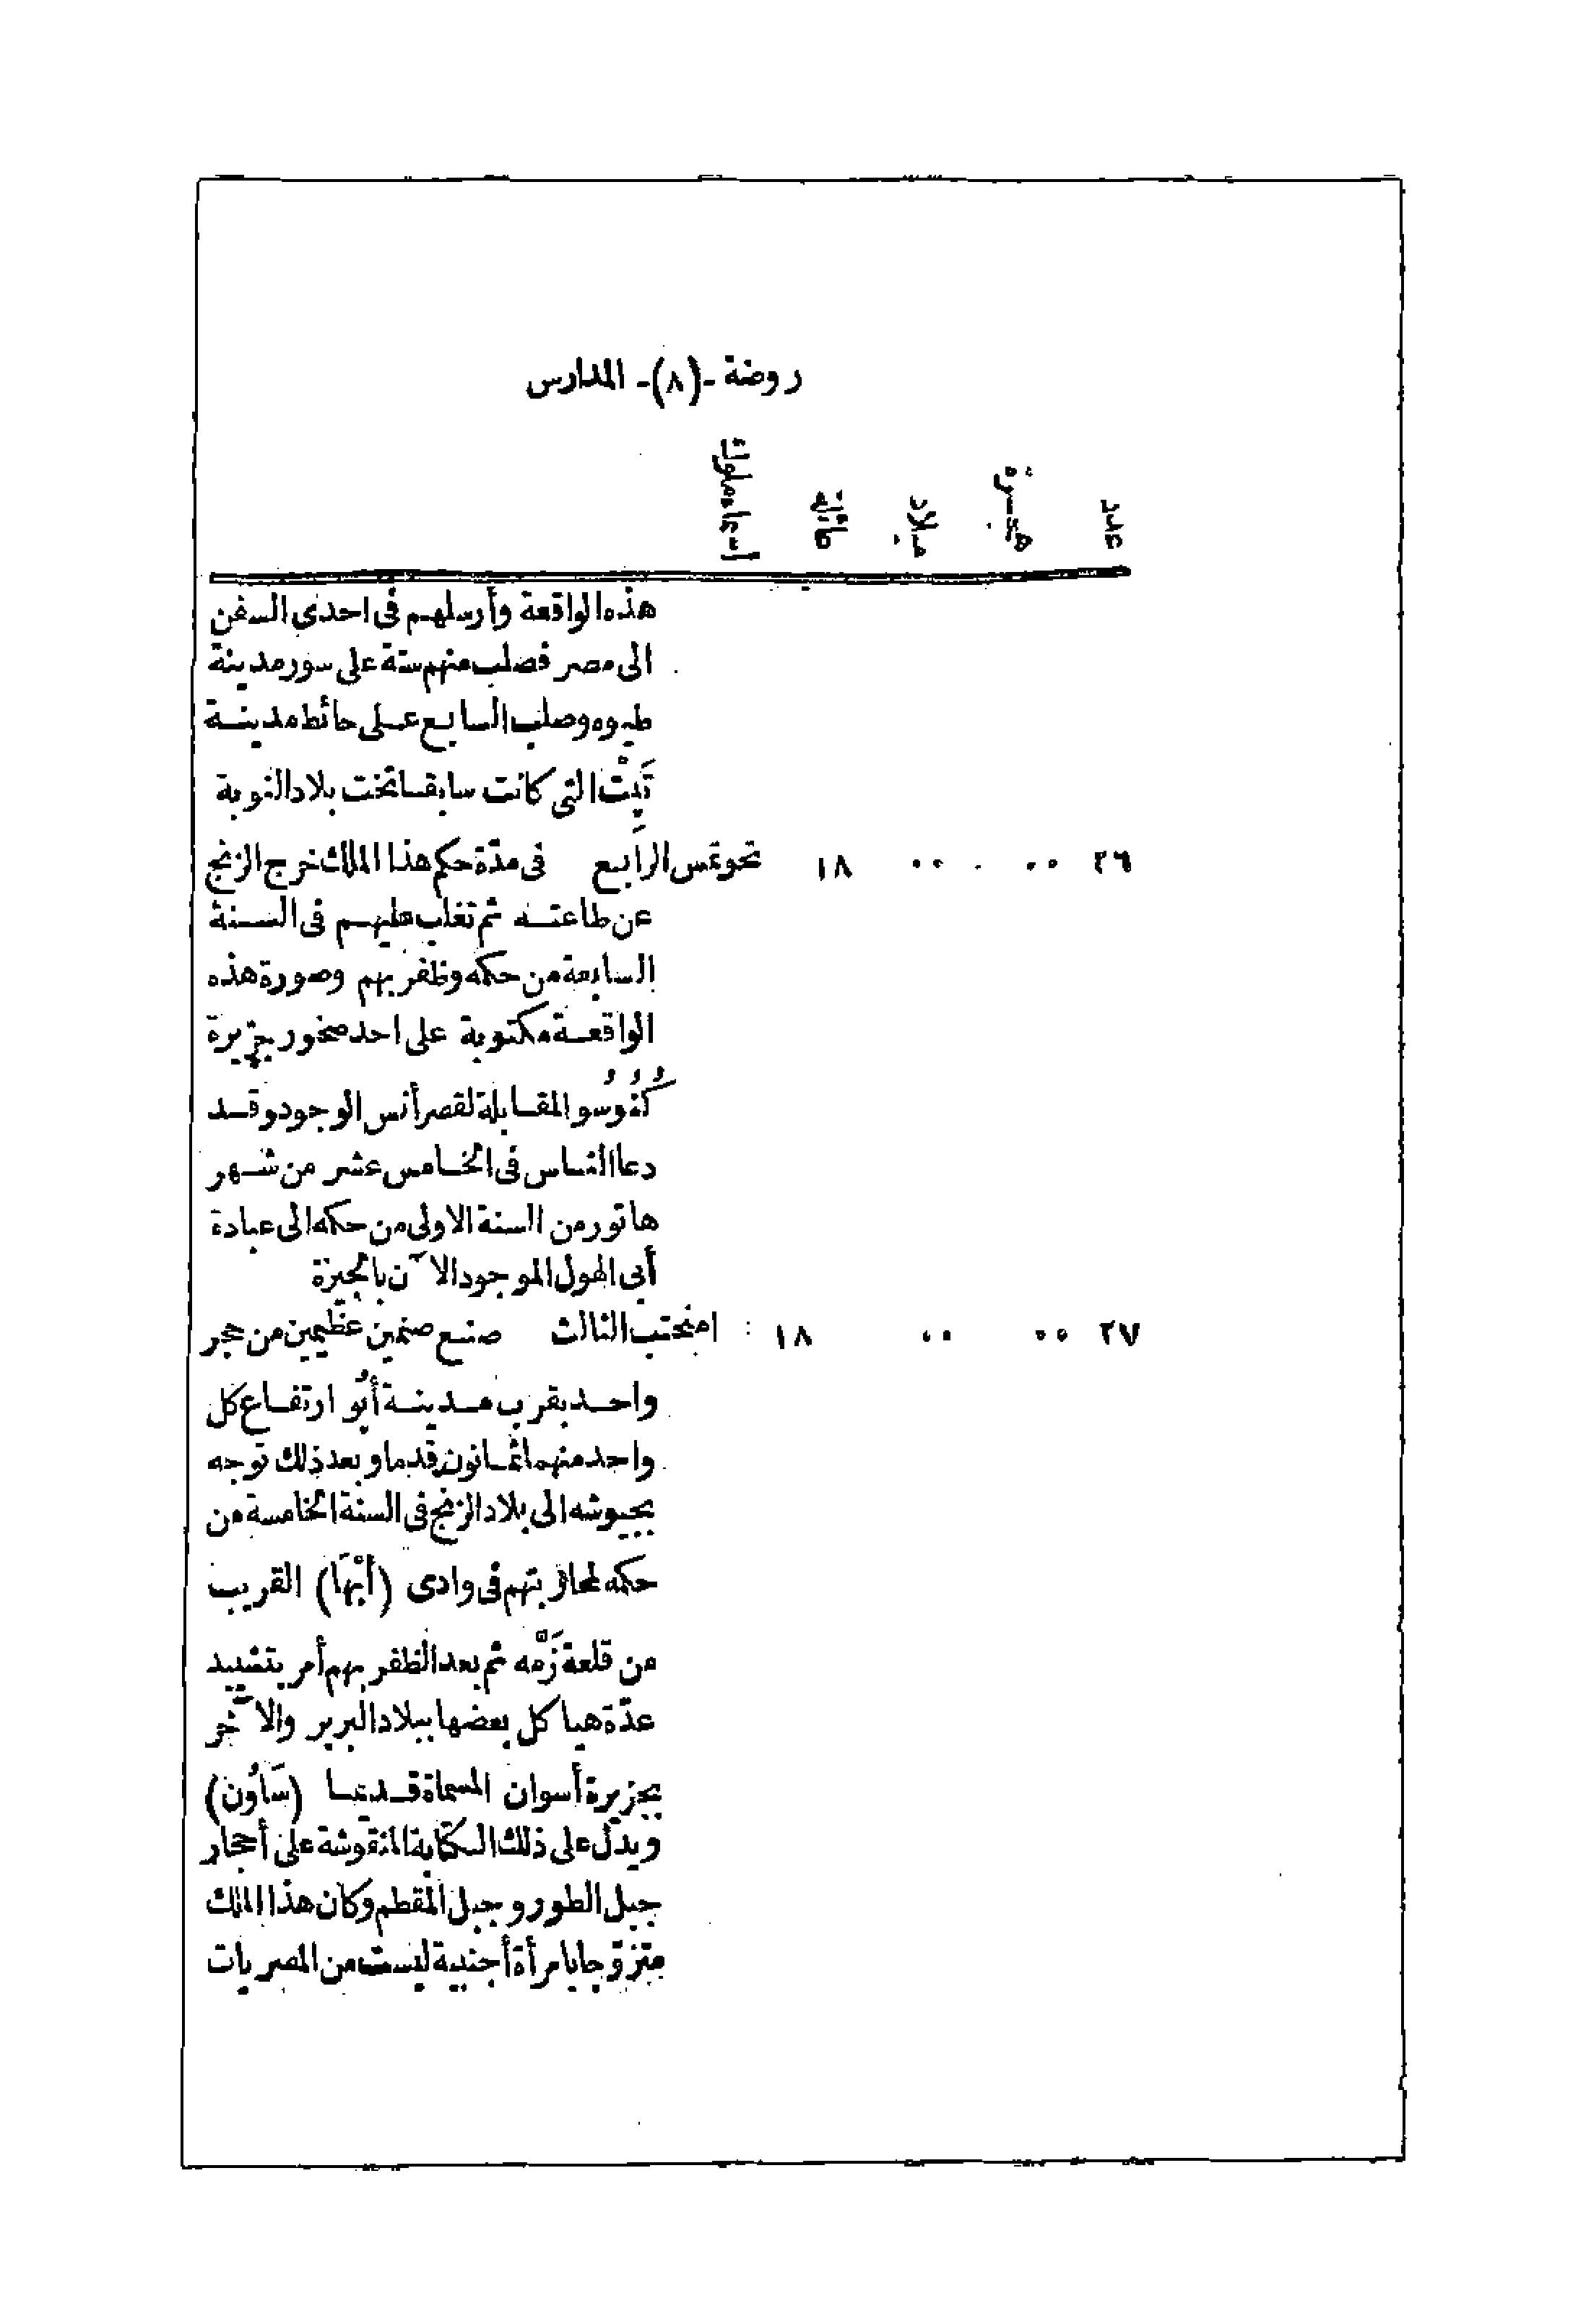 روضة -(٨)- المدارس
عدد هجرة ميلاد عائلة أسماء ملوك
هذه الواقعة وأرسلهم فى احدى السفن
الى مصر فصلب منهم ستة على سور مدينة
طيوه وصلب السابع على حائط مدينة
نَپَتْ التى كانت سابقا تخت بلاد النوبة
٢٦ ٠٠ ٠٠ ١٨ تحوتمس الرابع فى مدّة حكم هذا الملك خرج الزنج
عن طاعته ثم تغلب عليهم فى السنة
السابعة من حكمه وظفر بهم وصورة هذه
الواقعة مكتوبة على احد صخور جزيرة
كُنُوسُو المقابلة لقصر أنس الوجود وقد
دعا الناس فى الخامس عشر من شهر
هاتور من السنة الاولى من حكمه الى عبادة
أبى الهول الموجود الآن بالجيزة
٢٧ ٠٠ ٠٠ ١٨ امنحتب الثالث صنع صنمين عظيمين من حجر
واحد بقرب مدينة أبُو ارتفاع كل
واحد منهما ثمانون قدما وبعد ذلك توجه
بجيوشه الى بلاد الزنج فى السنة الخامسة من
حكمه لمحاربتهم فى وادى (أبْهَا) القريب
من قلعة زَمّه ثم بعد الظفر بهم أمر بتشييد
عدّة هياكل بعضها ببلاد البربر والآخر
بجزيرة أسوان المسماة قديما (سَاوُن)
ويدل على ذلك الكتابة المنقوشة على أحجار
جبل الطور وجبل المقطم وكان هذا الملك
متزوّجا بامرأة أجنبية ليست من المصريات